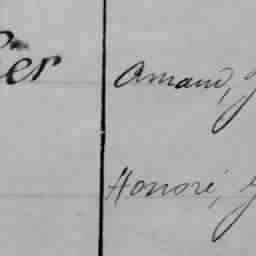 er Amand,
Honoré,